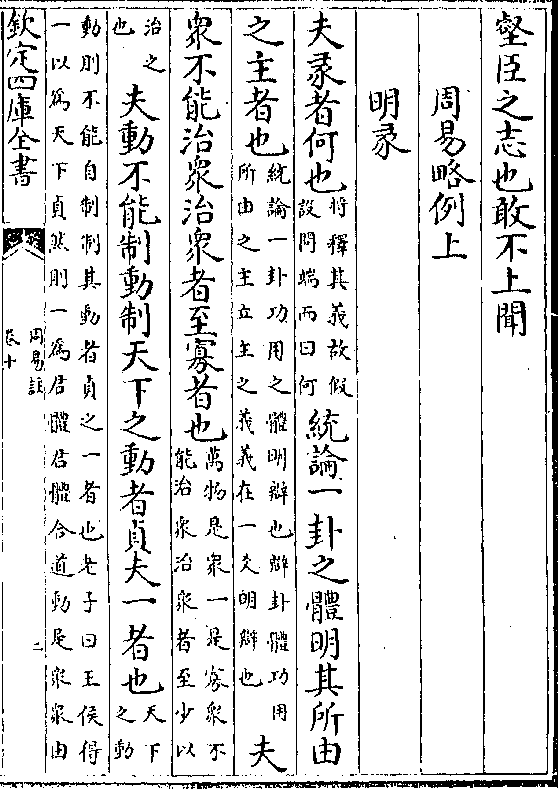 壑臣之志也敢不上聞
周易略例上
明彖
夫彖者何也將釋其義故假設問端而曰何統論一卦之體明其所由
之主者也統論一卦功用之體明辯也辯卦體功用所由之主立主之義義在一爻明辯也夫
衆不能治衆治衆者至寡者也萬物是衆一是寡衆不能治衆治衆者至少以
治之也夫動不能制動制天下之動者貞夫一者也天下之動
動則不能自制制其動者貞之一者也老子曰王侯得
一以爲天下貞然則一爲君體君體合道動是衆衆由
欽定四庫全書
周易註
卷十
二